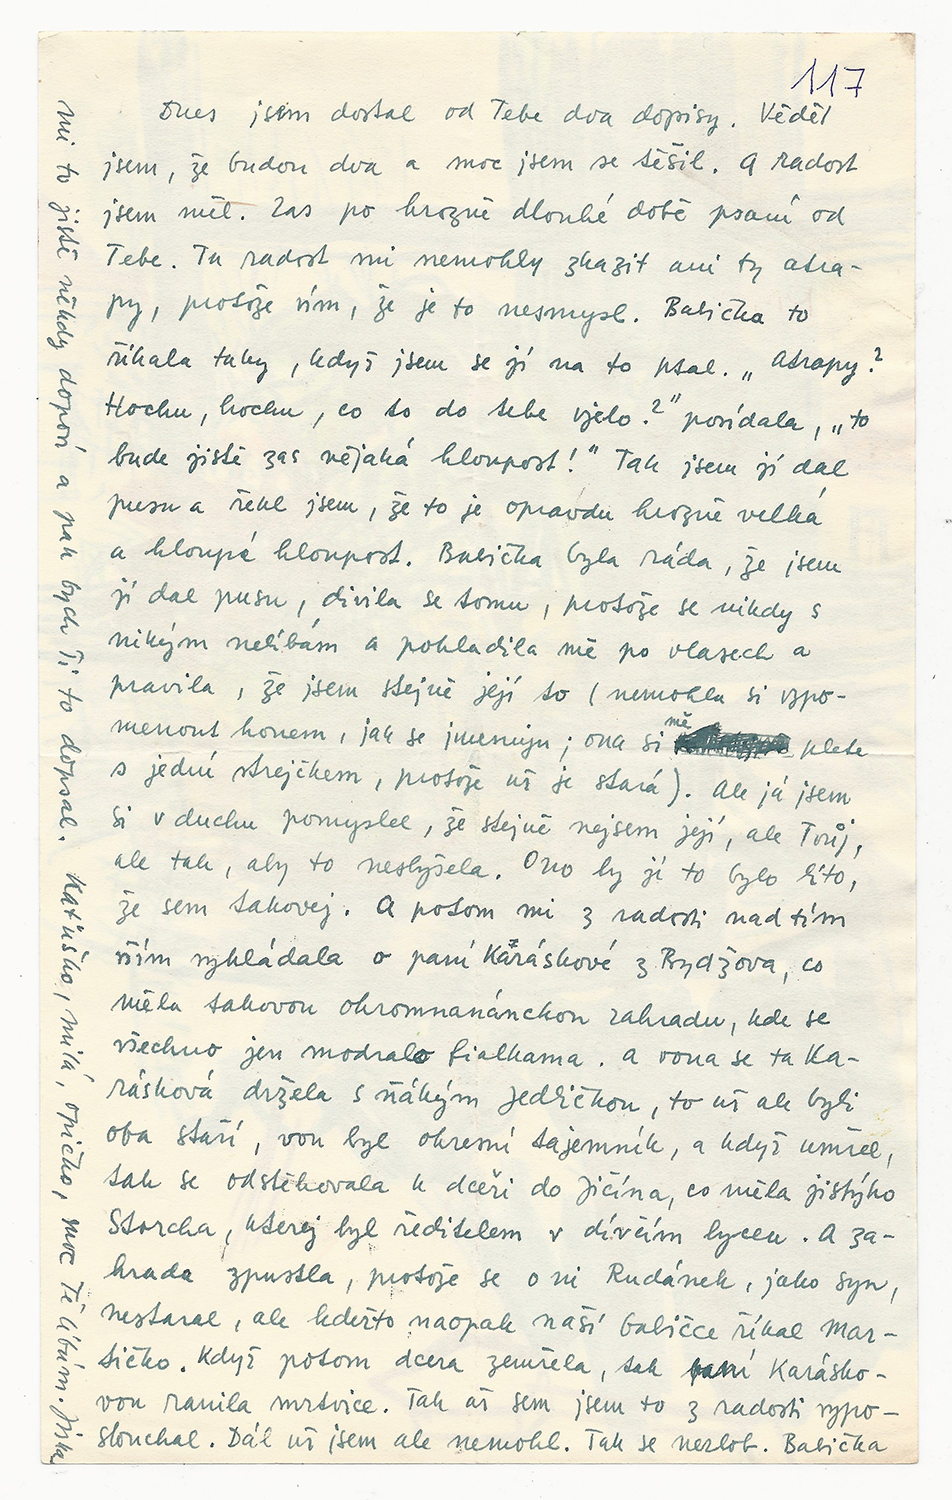 117
Dnes jsem dostal od Tebe dva dopisy. Věděl
jsem, že budou dva a moc jsem se těšil. A radost
jsem měl. Zas po hrozně dlouhé době psaní od
Tebe. Tu radost mi nemohly zkazit ani ty atra-
py, protože vím, že je to nesmysl. Babička to
říkala taky, když jsem se jí na to ptal. „Atrapy?
Hochu, hochu, co to do tebe vjelo?" povídala, „to
bude jistě zas nějaká hloupost!" Tak jsem jí dal
pusu a řekl jsem, že to je opravdu hrozně velká
a hloupá hloupost. Babička byla ráda, že jsem
jí dal pusu, divila se tomu, protože se nikdy s
nikým nelíbám a pohladila mě po vlasech a
pravila, že jsem stejně její to (nemohla si vzpo-
menout honem, jak se jmenuju; ona si mě plete
s jedním strejčkem, protože už je stará). Ale já jsem
si v duchu pomyslel, že stejně nejsem její, ale Tvůj,
ale tak, aby to neslyšela. Ono by jí to bylo líto,
že sem takovej. A potom mi z radosti nad tím
vším vykládala o paní Káráskové z Bydžova, co
měla takovou ohromnanánckou zahradu, kde se
všechno jen modralo fialkama. A vona se ta Ka-
rásková držela s ňákým Jedličkou, to už ale byli
oba staří, von byl okresní tajemník, a když umřel,
tak se odstěhovala k dceři do Jičína, co měla jistýho
Storcha, kterej byl ředitelem v dívčím lyceu. A za-
hrada zpustla, protože se o ni Rudánek, jako syn,
nestaral, ale kdežto naopak naší babičce říkal Mar-
tičko. Když potom dcera zemřela, tak paní Karásko-
vou ranila mrtvice. Tak až sem jsem to z radosti vypo-
slouchal. Dál už jsem ale nemohl. Tak se nezlob. Babička
mi to jistě někdy dopoví a pak bych Ti to dopsal. Katuško, milá, opičko, moc Tě líbám. Jirka